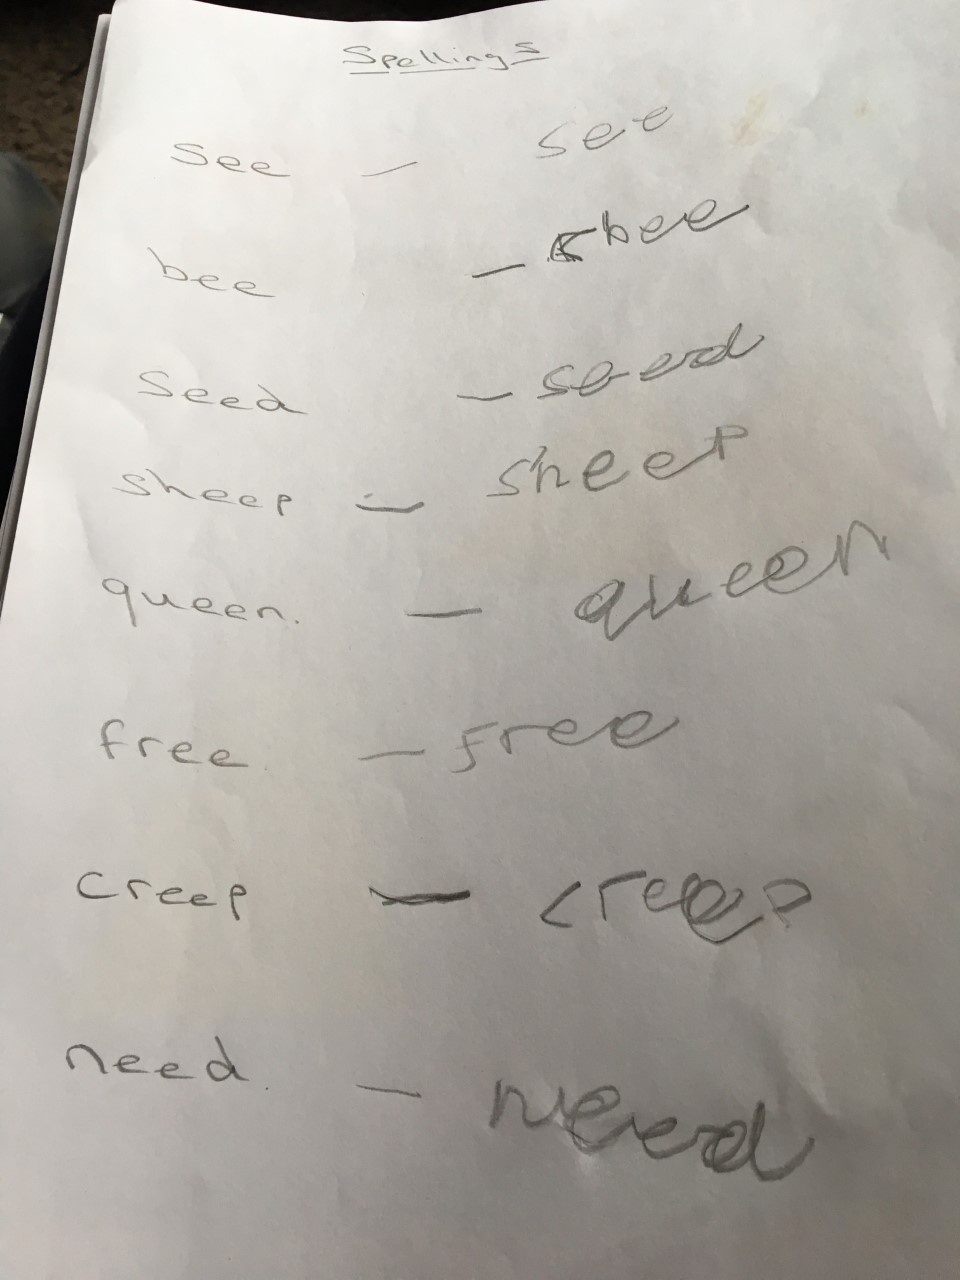 Spellings
see - see
bee - bee
seed - seed
sheep - sheep
queen. - queen
free - free
creep - creep
need. - need